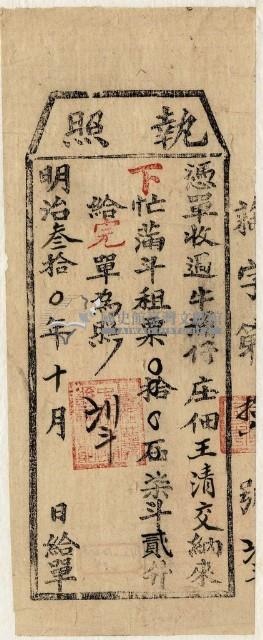 執照
憑單收過牛 仔庄佃王清交納來
下忙滿斗租粟〇拾〇石柒斗貳升
給完單為照
明治叁拾〇年十月 日給單
字第 拾 號